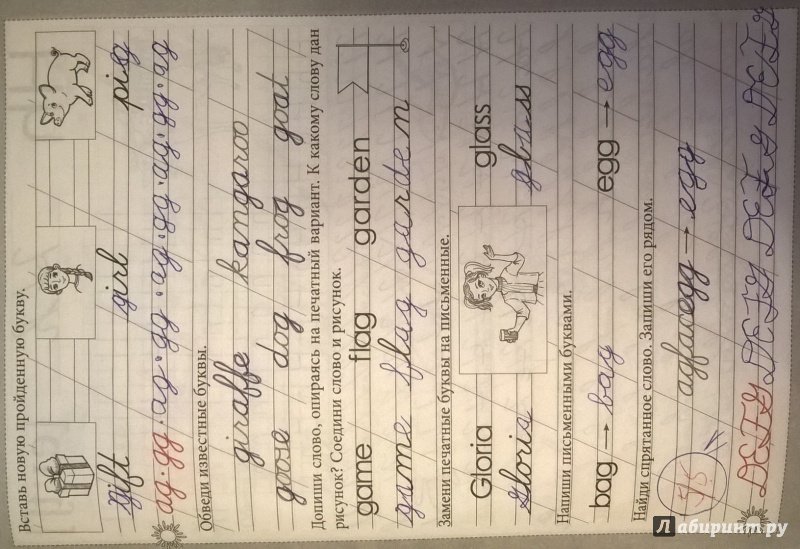 Вставь новую пройденную букву.
gift girl pig
ag•gg•ag•gg•ag•gg•ag•gg•ag
Обведи известные буквы.
giraffe kangaroo
goose dog frog goat
Допиши слово, опираясь на печатный вариант. К какому слову дан
рисунок? Соедини слово и рисунок.
game flag garden
game flag garden
Замени печатные буквы на письменные.
Gloria glass
Gloria glass
Напиши письменными буквами.
bag → bag egg → egg
Найди спрятанное слово. Запиши его рядом.
agfaoegg → egg
DEFG DEFG DEFG DEFG
Лабиринт.ру